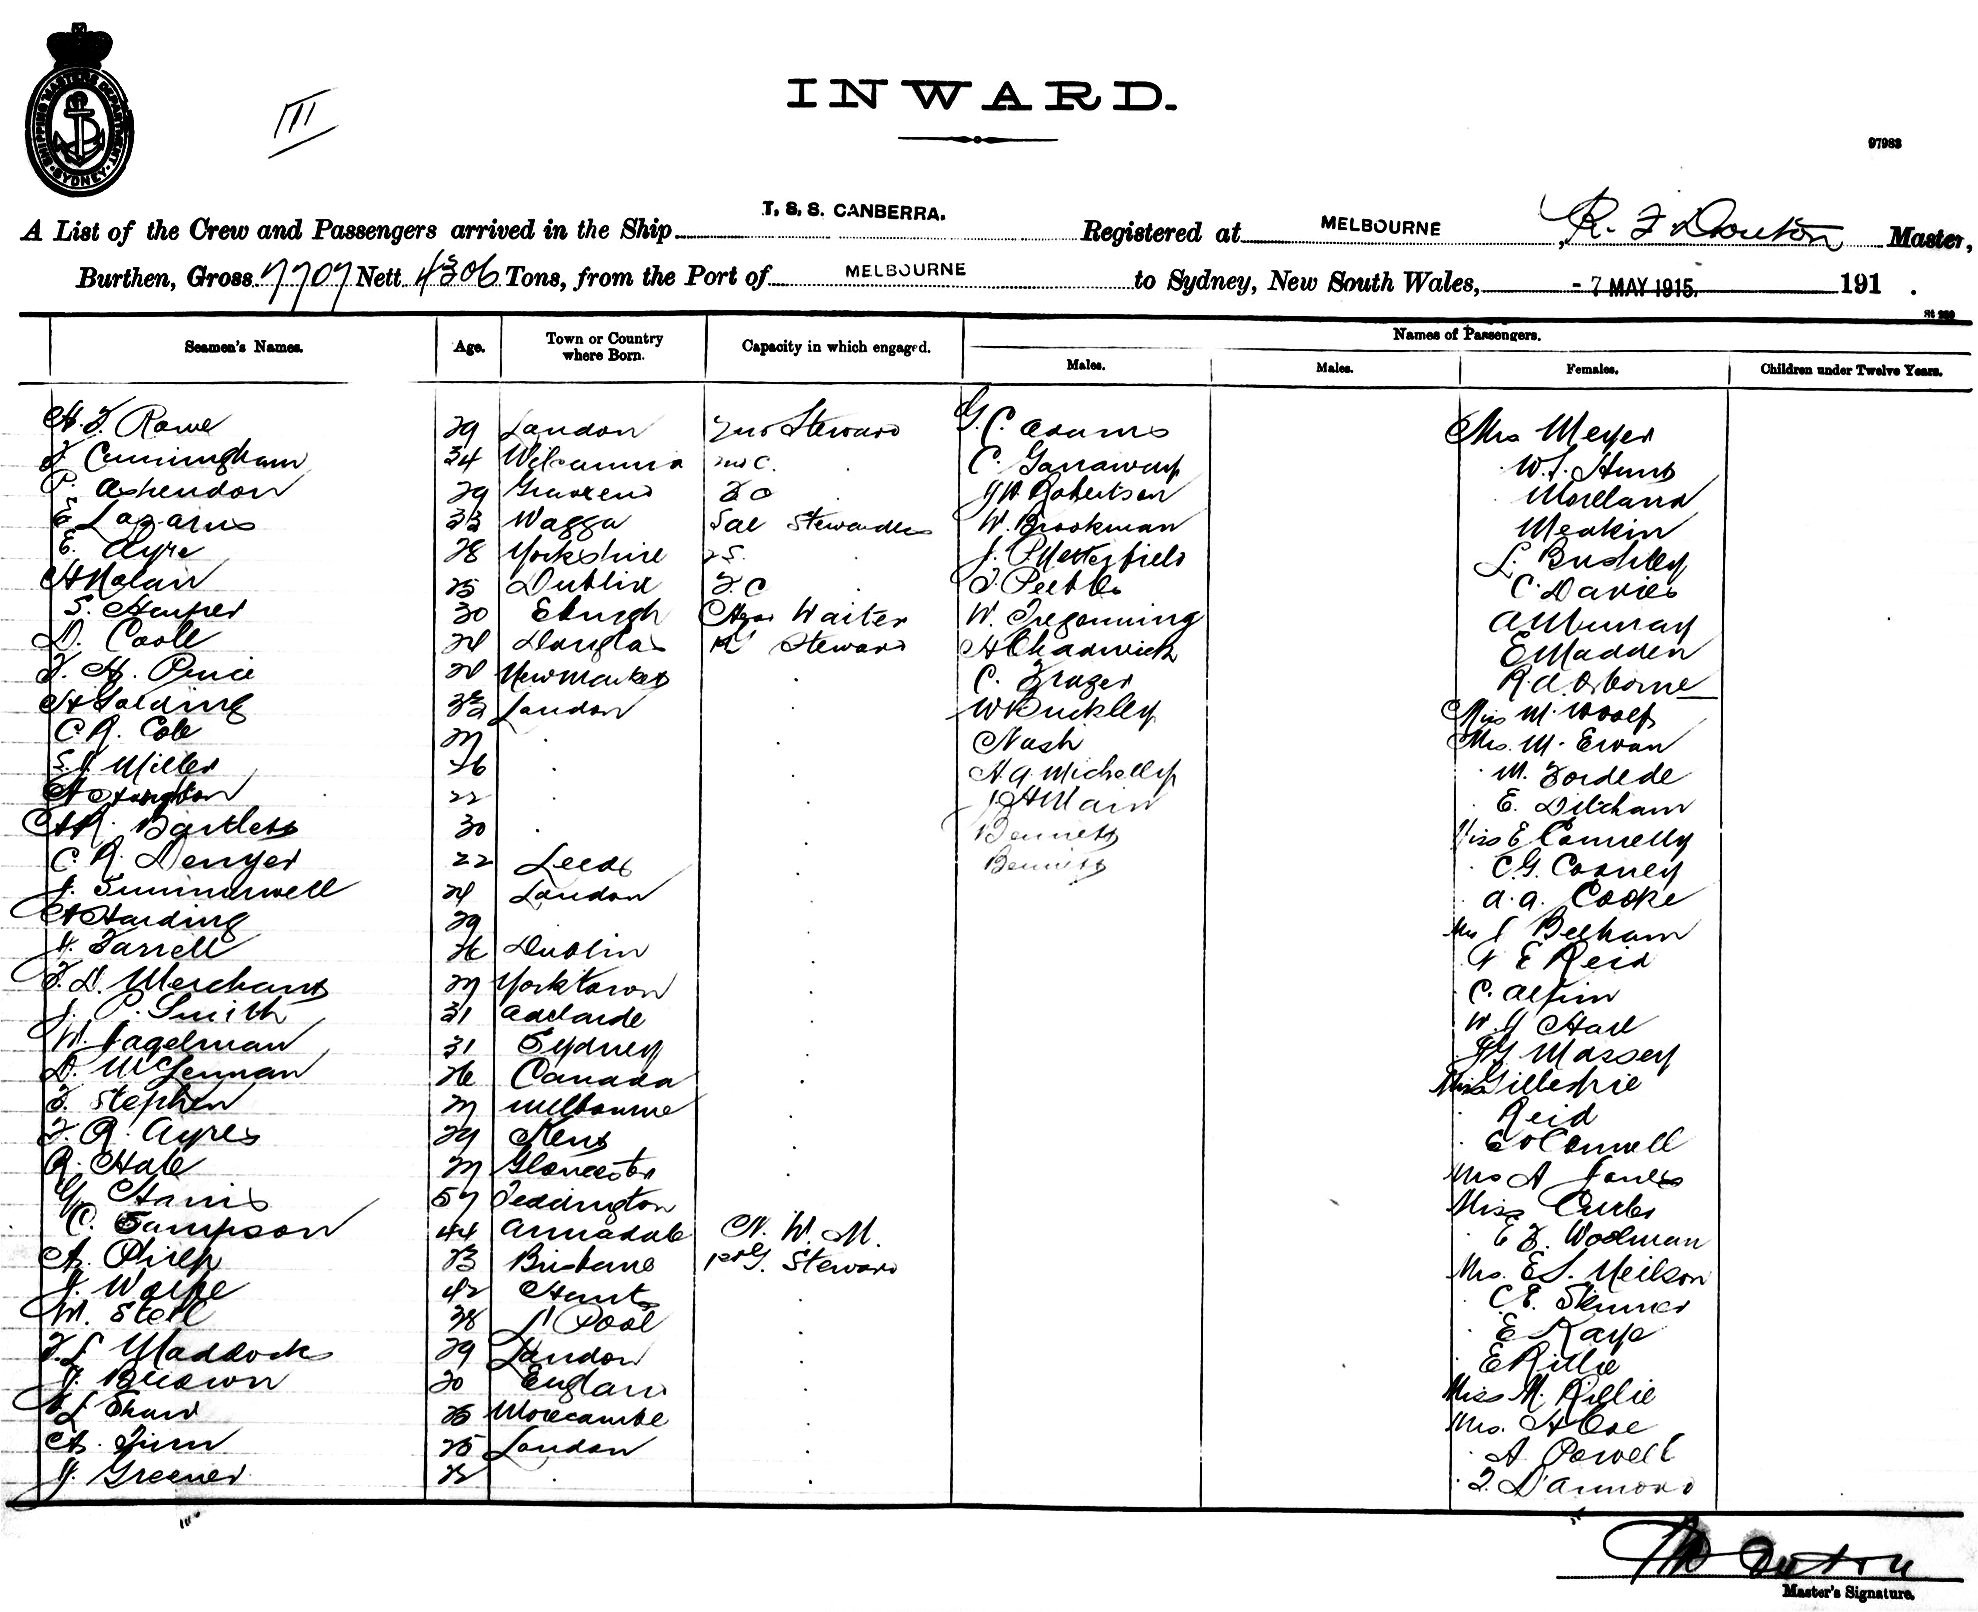 SHIPPING MASTERS DEPARTMENT · SYDNEY ·
III
INWARD.
97983
A List of the Crew and Passengers arrived in the Ship T. S. S. CANBERRA. Registered at MELBOURNE R. F. Douton Master,
Burthen, Gross 7707 Nett 4306 Tons, from the Port of MELBOURNE to Sydney, New South Wales, - 7 MAY 1915. 191 .
Seamen's Names. Age. Town or Country where Born. Capacity in which engaged. Names of Passengers.
Males. Males. Females. Children under Twelve Years.
H. F. Rowe 29 London 2nd Steward G. C. Adams Mrs Meyer
F Cunningham 34 Wilcannia C. Garraway W. S. Hunt
P. Ashendon 29 Do J H Robertson Moreland
E Lazarus 33 Wagga Stewardess W. Brookman Meakin
E. Ayre 28 Yorkshire J. Butterfield L. Bushley
H Nolan 25 Dublin F. C T Peebles C. Davies
S. Hunter 30 Eburgh Head Waiter W. Tregonning A Murray
D. Coole 24 Douglas Steward H Chadwick E Madden
F. H. Price 24 Newmarket C. Frazer R. A. Osborne
H Golding London W Buckley Miss M. Woolf
C. R. Cole 27 Nash Mrs. M. Ewan
S. J. Miller 26 H. A. Michelly M. Fordede
H 22 J. H Main E. Dilcham
H R. Bartlett 30 Bennett Miss E Connelly
C. R. Denyer 22 Leeds Bennett C. G. Cooney
J. Summerwell 24 London A. A. Cooke
H Harding 29 Mrs J Belham
J. Farrell 26 Dublin E Reid
F. D. Merchant 27 Yorktown C. Alpin
J. P. Smith 31 Adelaide W. J Hail
W. Hagelman 31 Sydney Massey
D. McLennan 26 Canada Miss Gillespie
F. Stephen 27 Melbourne Reid
F. R. Ayres 29 Kent E O'Connell
R. Hale 27 Gloucester Mrs A Jones
G. Harris 57 Teddington Miss Curtis
C. Sampson 44 Armadale N. W. M. E F. Woolman
A. Philp 23 Brisbane 1st G. Steward Mrs. E S. Neilson
J. Wolfe 42 Hunts C. E. Skinner
W. Steil 28 L'Pool E Kaye
F. L Maddock 29 London E Rillie
J. Brown 30 England Miss M. Rillie
L Shaw 26 Morecambe Mrs. H Coe
A. Finn 25 London A Powell
J. Greener 22 F. D'Armond
Master's Signature.